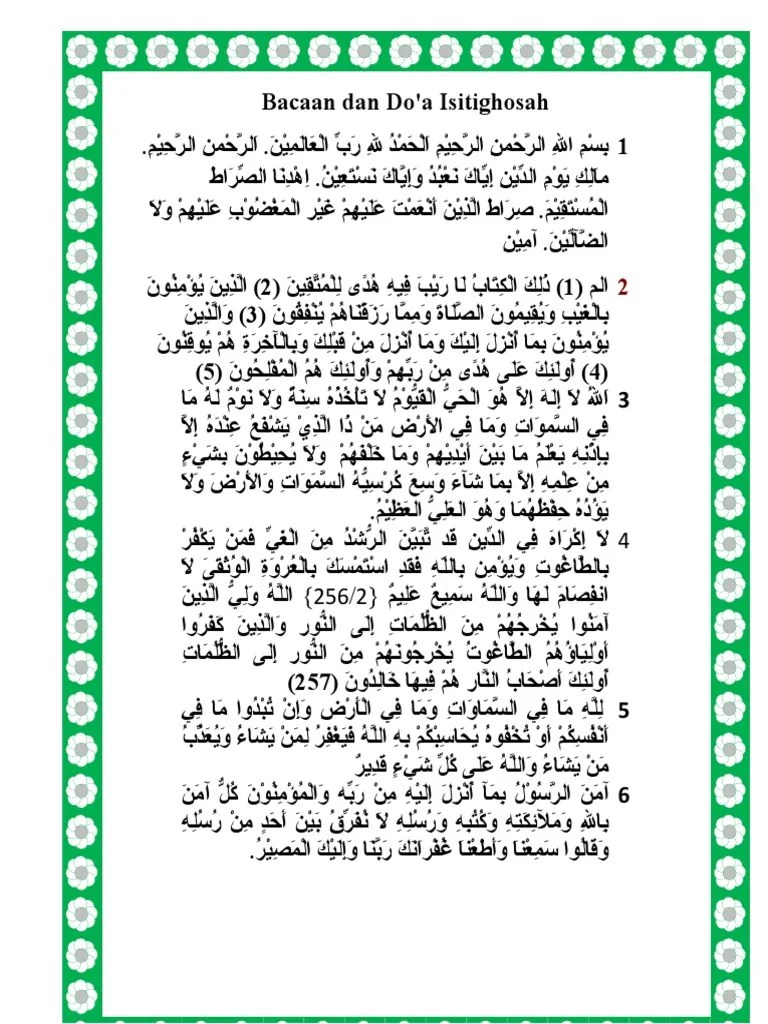 Bacaan dan Do'a Isitighosah
1 بِسْمِ اللهِ الرَّحْمنِ الرَّحِيْمِ اَلْحَمْدُ للهِ رَبِّ الْعَالَمِيْنَ. اَلرَّحْمنِ الرَّحِيْمِ.
مالِكِ يَوْمِ الدِّيْنِ إِيَّاكَ نَعْبُدُ وَإِيَّاكَ نَسْتَعِيْنُ. اِهْدِنَا الصِّرَاطَ
الْمُسْتَقِيْمَ. صِرَاطَ الَّذِيْنَ أَنْعَمْتَ عَلَيْهِمْ غَيْرِ الْمَغْضُوْبِ عَلَيْهِمْ وَلاَ
الضَّآلِّيْنَ. آمِيْن
2 الم (1) ذَلِكَ الْكِتَابُ لَا رَيْبَ فِيهِ هُدًى لِلْمُتَّقِينَ (2) الَّذِينَ يُؤْمِنُونَ
بِالْغَيْبِ وَيُقِيمُونَ الصَّلَاةَ وَمِمَّا رَزَقْنَاهُمْ يُنْفِقُونَ (3) وَالَّذِينَ
يُؤْمِنُونَ بِمَا أُنْزِلَ إِلَيْكَ وَمَا أُنْزِلَ مِنْ قَبْلِكَ وَبِالْآَخِرَةِ هُمْ يُوقِنُونَ
(4) أُولَئِكَ عَلَى هُدًى مِنْ رَبِّهِمْ وَأُولَئِكَ هُمُ الْمُفْلِحُونَ (5)
3 اَللهُ لاَ إِلهَ إِلاَّ هُوَ الْحَيُّ الْقَيُّوْمُ لاَ تَأْخُذُهُ سِنَةٌ وَلاَ نَوْمٌ لَهُ مَا
فِي السَّموَاتِ وَمَا فِي الأَرْضِ مَنْ ذَا الَّذِيْ يَشْفَعُ عِنْدَهُ إِلاَّ
بِإِذْنِهِ يَعْلَمُ مَا بَيْنَ أَيْدِيْهِمْ وَمَا خَلْفَهُمْ وَلاَ يُحِيْطُوْنَ بِشَيْءٍ
مِنْ عِلْمِهِ إِلاَّ بِمَا شَآءَ وَسِعَ كُرْسِيُّهُ السَّمَوَاتِ وَالأَرْضَ وَلاَ
يَؤُدُهُ حِفْظُهُمَا وَهُوَ العَلِيُّ العَظِيْمُ.
4 لاَ إِكْرَاهَ فِي الدِّينِ قَد تَّبَيَّنَ الرُّشْدُ مِنَ الْغَيِّ فَمَنْ يَكْفُرْ
بِالطَّاغُوتِ وَيُؤْمِن بِاللّهِ فَقَدِ اسْتَمْسَكَ بِالْعُرْوَةِ الْوُثْقَىَ لاَ
انفِصَامَ لَهَا وَاللَّهُ سَمِيعٌ عَلِيمٌ {256/2} اللَّهُ وَلِيُّ الَّذِينَ
آمَنُوا يُخْرِجُهُمْ مِنَ الظُّلُمَاتِ إِلَى النُّورِ وَالَّذِينَ كَفَرُوا
أَوْلِيَاؤُهُمُ الطَّاغُوتُ يُخْرِجُونَهُمْ مِنَ النُّورِ إِلَى الظُّلُمَاتِ
أُولَئِكَ أَصْحَابُ النَّارِ هُمْ فِيهَا خَالِدُونَ (257)
5 لِلَّهِ مَا فِي السَّمَاوَاتِ وَمَا فِي الْأَرْضِ وَإِنْ تُبْدُوا مَا فِي
أَنْفُسِكُمْ أَوْ تُخْفُوهُ يُحَاسِبْكُمْ بِهِ اللَّهُ فَيَغْفِرُ لِمَنْ يَشَاءُ وَيُعَذِّبُ
مَنْ يَشَاءُ وَاللَّهُ عَلَى كُلِّ شَيْءٍ قَدِيرٌ
6 آمَنَ الرَّسُوْلُ بِمَآ أُنْزِلَ إِلَيْهِ مِنْ رَبِّهِ وَالْمُؤْمِنُوْنَ كُلٌّ آمَنَ
بِاللهِ وَمَلآئِكَتِهِ وَكُتُبِهِ وَرُسُلِهِ لاَ نُفَرِّقُ بَيْنَ أَحَدٍ مِنْ رُسُلِهِ
وَقَالُوا سَمِعْنَا وَأَطَعْنَا غُفْرَانَكَ رَبَّنَا وَإِلَيْكَ الْمَصِيْرُ.